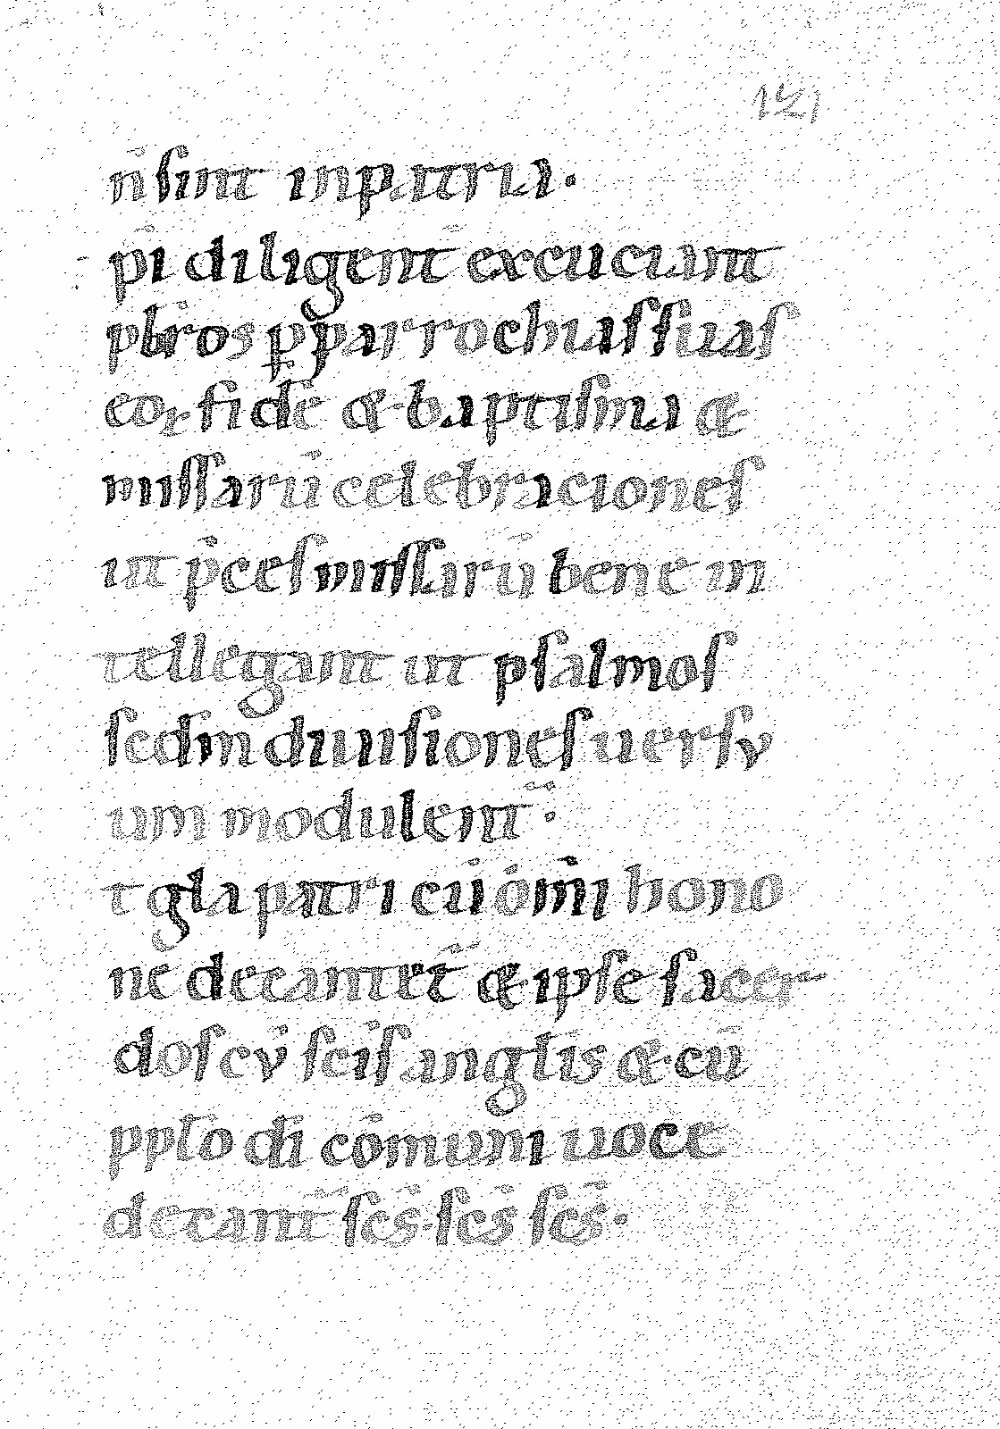 151
n̄ sint inpatria·
p̄i diligent̄ excuciant
pb̄ros ꝑ parrochias suas
eoꝝ fidē & baptisma &
missarū celebraciones
ut p̄ces missarū bene in
tellegant ut psalmos
scd̄m diuisiones uersu
um modulent̄·
t gl̄a patri cū om̄i hono
re decantet̄ & ipse sacer
dos cū sc̄is angl̄is & cū
ppl̄o dī com̄uni uoce
decant̄ sc̄s· sc̄s sc̄s·